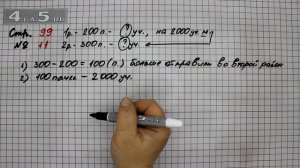 4 5
Стр. 99 1р.- 200 п. - ? уч., на 2000 уч. м
№ 11 2р.- 300 п. - ? уч.
1) 300 - 200 = 100 (п.) больше отправили во второй район
2) 100 пачек - 2000 уч.